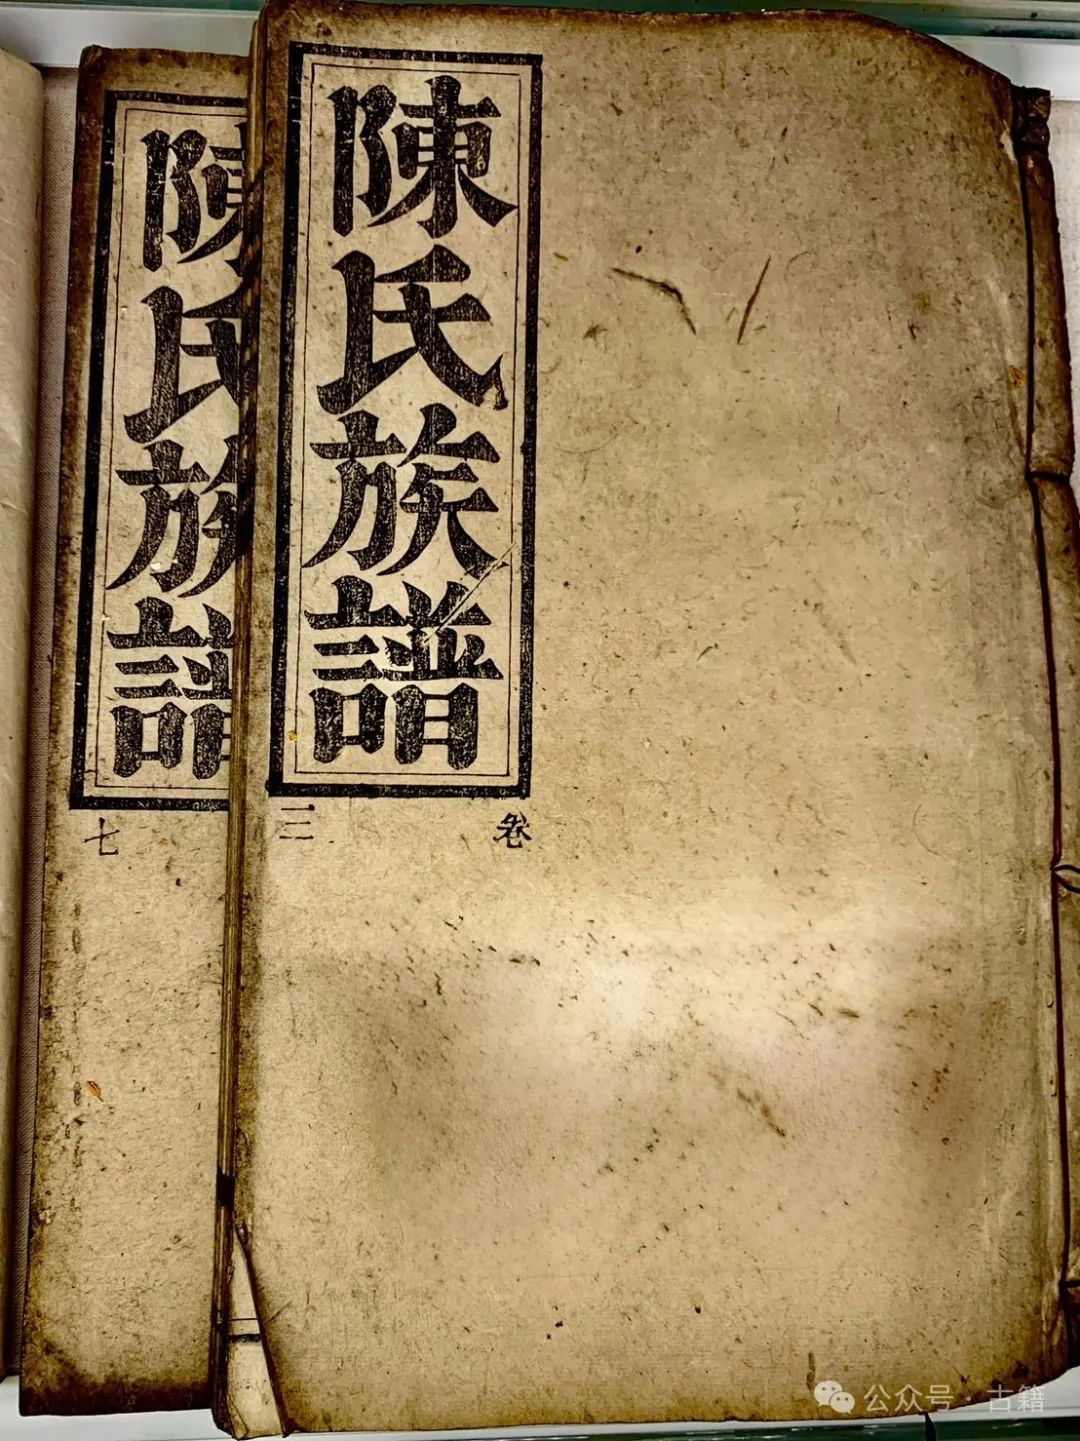 陳氏族譜
卷三
陳氏族譜
七
公众号·古籍